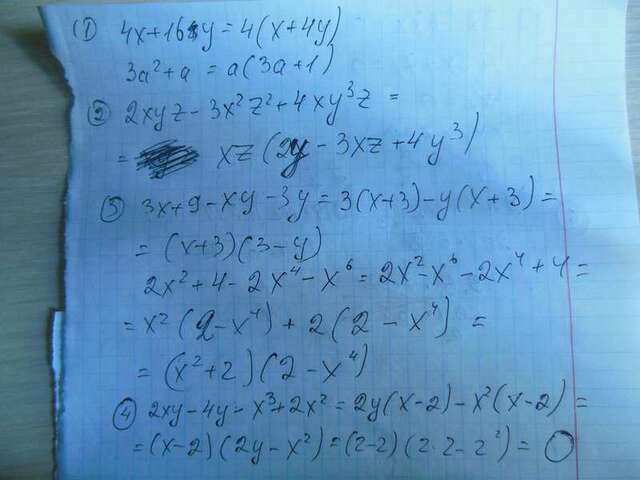 ① 4x+16y=4(x+4y)
3a²+a = a(3a+1)
② 2xyz-3x²z²+4xy³z =
= xz(2y-3xz+4y³)
③ 3x+9-xy-3y=3(x+3)-y(x+3)=
=(x+3)(3-y)
2x²+4-2x⁴-x⁶=2x²-x⁶-2x⁴+4=
=x²(2-x⁴)+2(2-x⁴)=
=(x²+2)(2-x⁴)
④ 2xy-4y-x³+2x²=2y(x-2)-x²(x-2)=
=(x-2)(2y-x²)=(2-2)(2·2-2²)=0